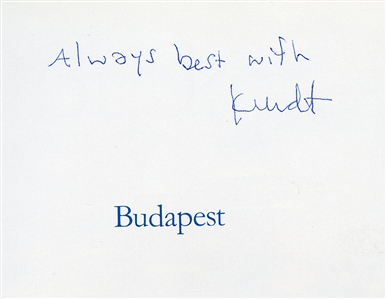 Always best with
Budapest